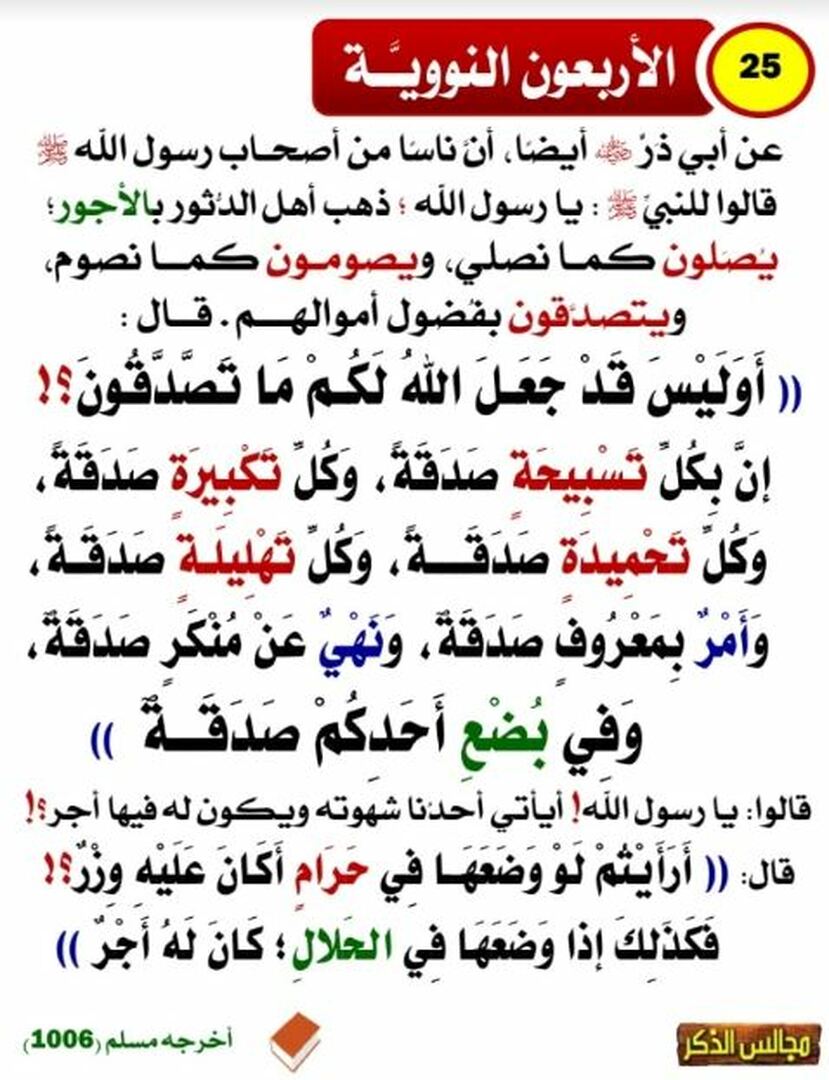 25
الأربعون النوويَّـة
عن أبي ذرّ رضي الله عنه أيضًا، أنَّ ناسًا من أصحـاب رسول الله ﷺ
قالوا للنبيِّ ﷺ : يا رسول الله ؛ ذهب أهل الدُّثور بالأجور؛
يُصَلون كمـا نصلي، ويصومـون كمـا نصوم،
ويتصدَّقون بفُضول أموالهـم. قـال :
(( أَوَلَيْسَ قَدْ جَعَـلَ اللهُ لَكُـمْ مَا تَصَّدَّقُـونَ؟!
إنَّ بِكُلِّ تَسْبِيحَةٍ صَدَقَةً، وَكُلِّ تَكْبِيرَةٍ صَدَقَةً،
وَكُلِّ تَحْمِيدَةٍ صَدَقَـــةً، وَكُلِّ تَهْلِيلَـةٍ صَدَقَـةً،
وَأَمْرٌ بِمَعْرُوفٍ صَدَقَةٌ، وَنَهْيٌ عَنْ مُنْكَرٍ صَدَقَةٌ،
وَفِي بُضْعِ أَحَدِكُمْ صَدَقَـــةٌ ))
قالوا: يا رسول الله! أيأتي أحدُنا شهوته ويكون له فيها أجر؟!
قال: (( أَرَأَيْتُمْ لَوْ وَضَعَهَـا فِي حَرَامٍ أَكَانَ عَلَيْهِ وِزْرٌ؟!
فَكَذَلِكَ إذا وَضَعَهَا فِي الحَلالِ؛ كَانَ لَهُ أَجْرٌ ))
أخرجه مسلم (1006)
مجالس الذكر